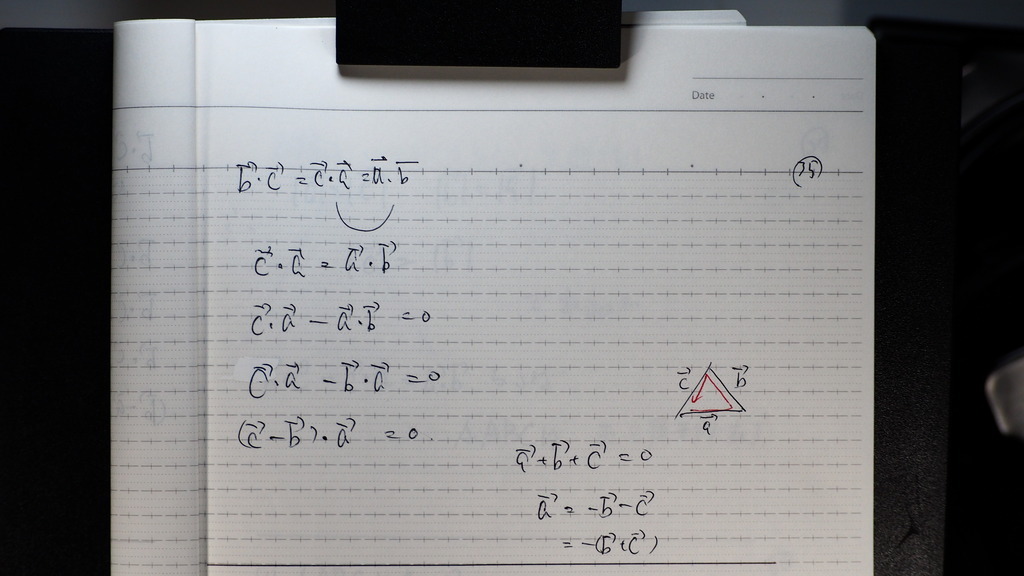 Date
(35)
b⃗·c⃗ = c⃗·a⃗ = a⃗·b⃗
c⃗·a⃗ = a⃗·b⃗
c⃗·a⃗ − a⃗·b⃗ = 0
c⃗·a⃗ − b⃗·a⃗ = 0
(c⃗ − b⃗)·a⃗ = 0.
c⃗ b⃗
a⃗
a⃗ + b⃗ + c⃗ = 0
a⃗ = −b⃗ − c⃗
= −(b⃗ + c⃗)